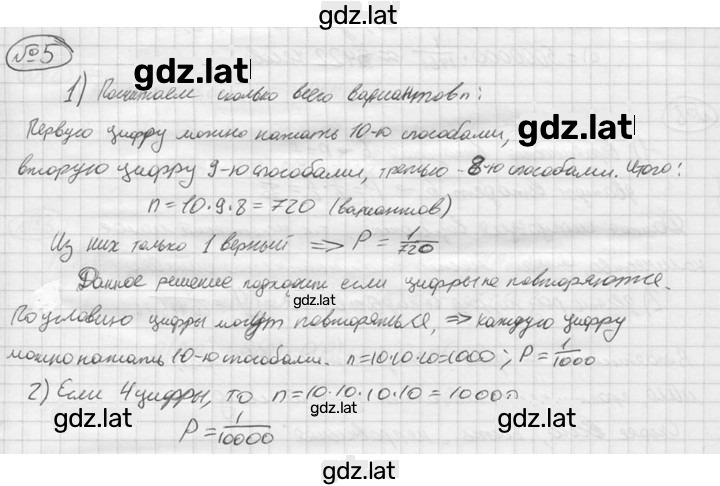 gdz.lat
№5
gdz.lat
1) Посчитаем сколько всего вариантов n:
Первую цифру можно нажать 10-ю способами,
вторую цифру 9-ю способами, третью - 8-ю способами. Итого:
n = 10·9·8 = 720 (вариантов)
Из них только 1 верный => P = 1/720
Данное решение подходит если цифры не повторяются.
gdz.lat
По условию цифры могут повторяться, => каждую цифру
можно нажать 10-ю способами. n=10·10·10=1000; P = 1/1000
2) Если 4 цифры, то n=10·10·10·10 = 10000
gdz.lat gdz.lat gdz.lat
P = 1/10000
gdz.lat